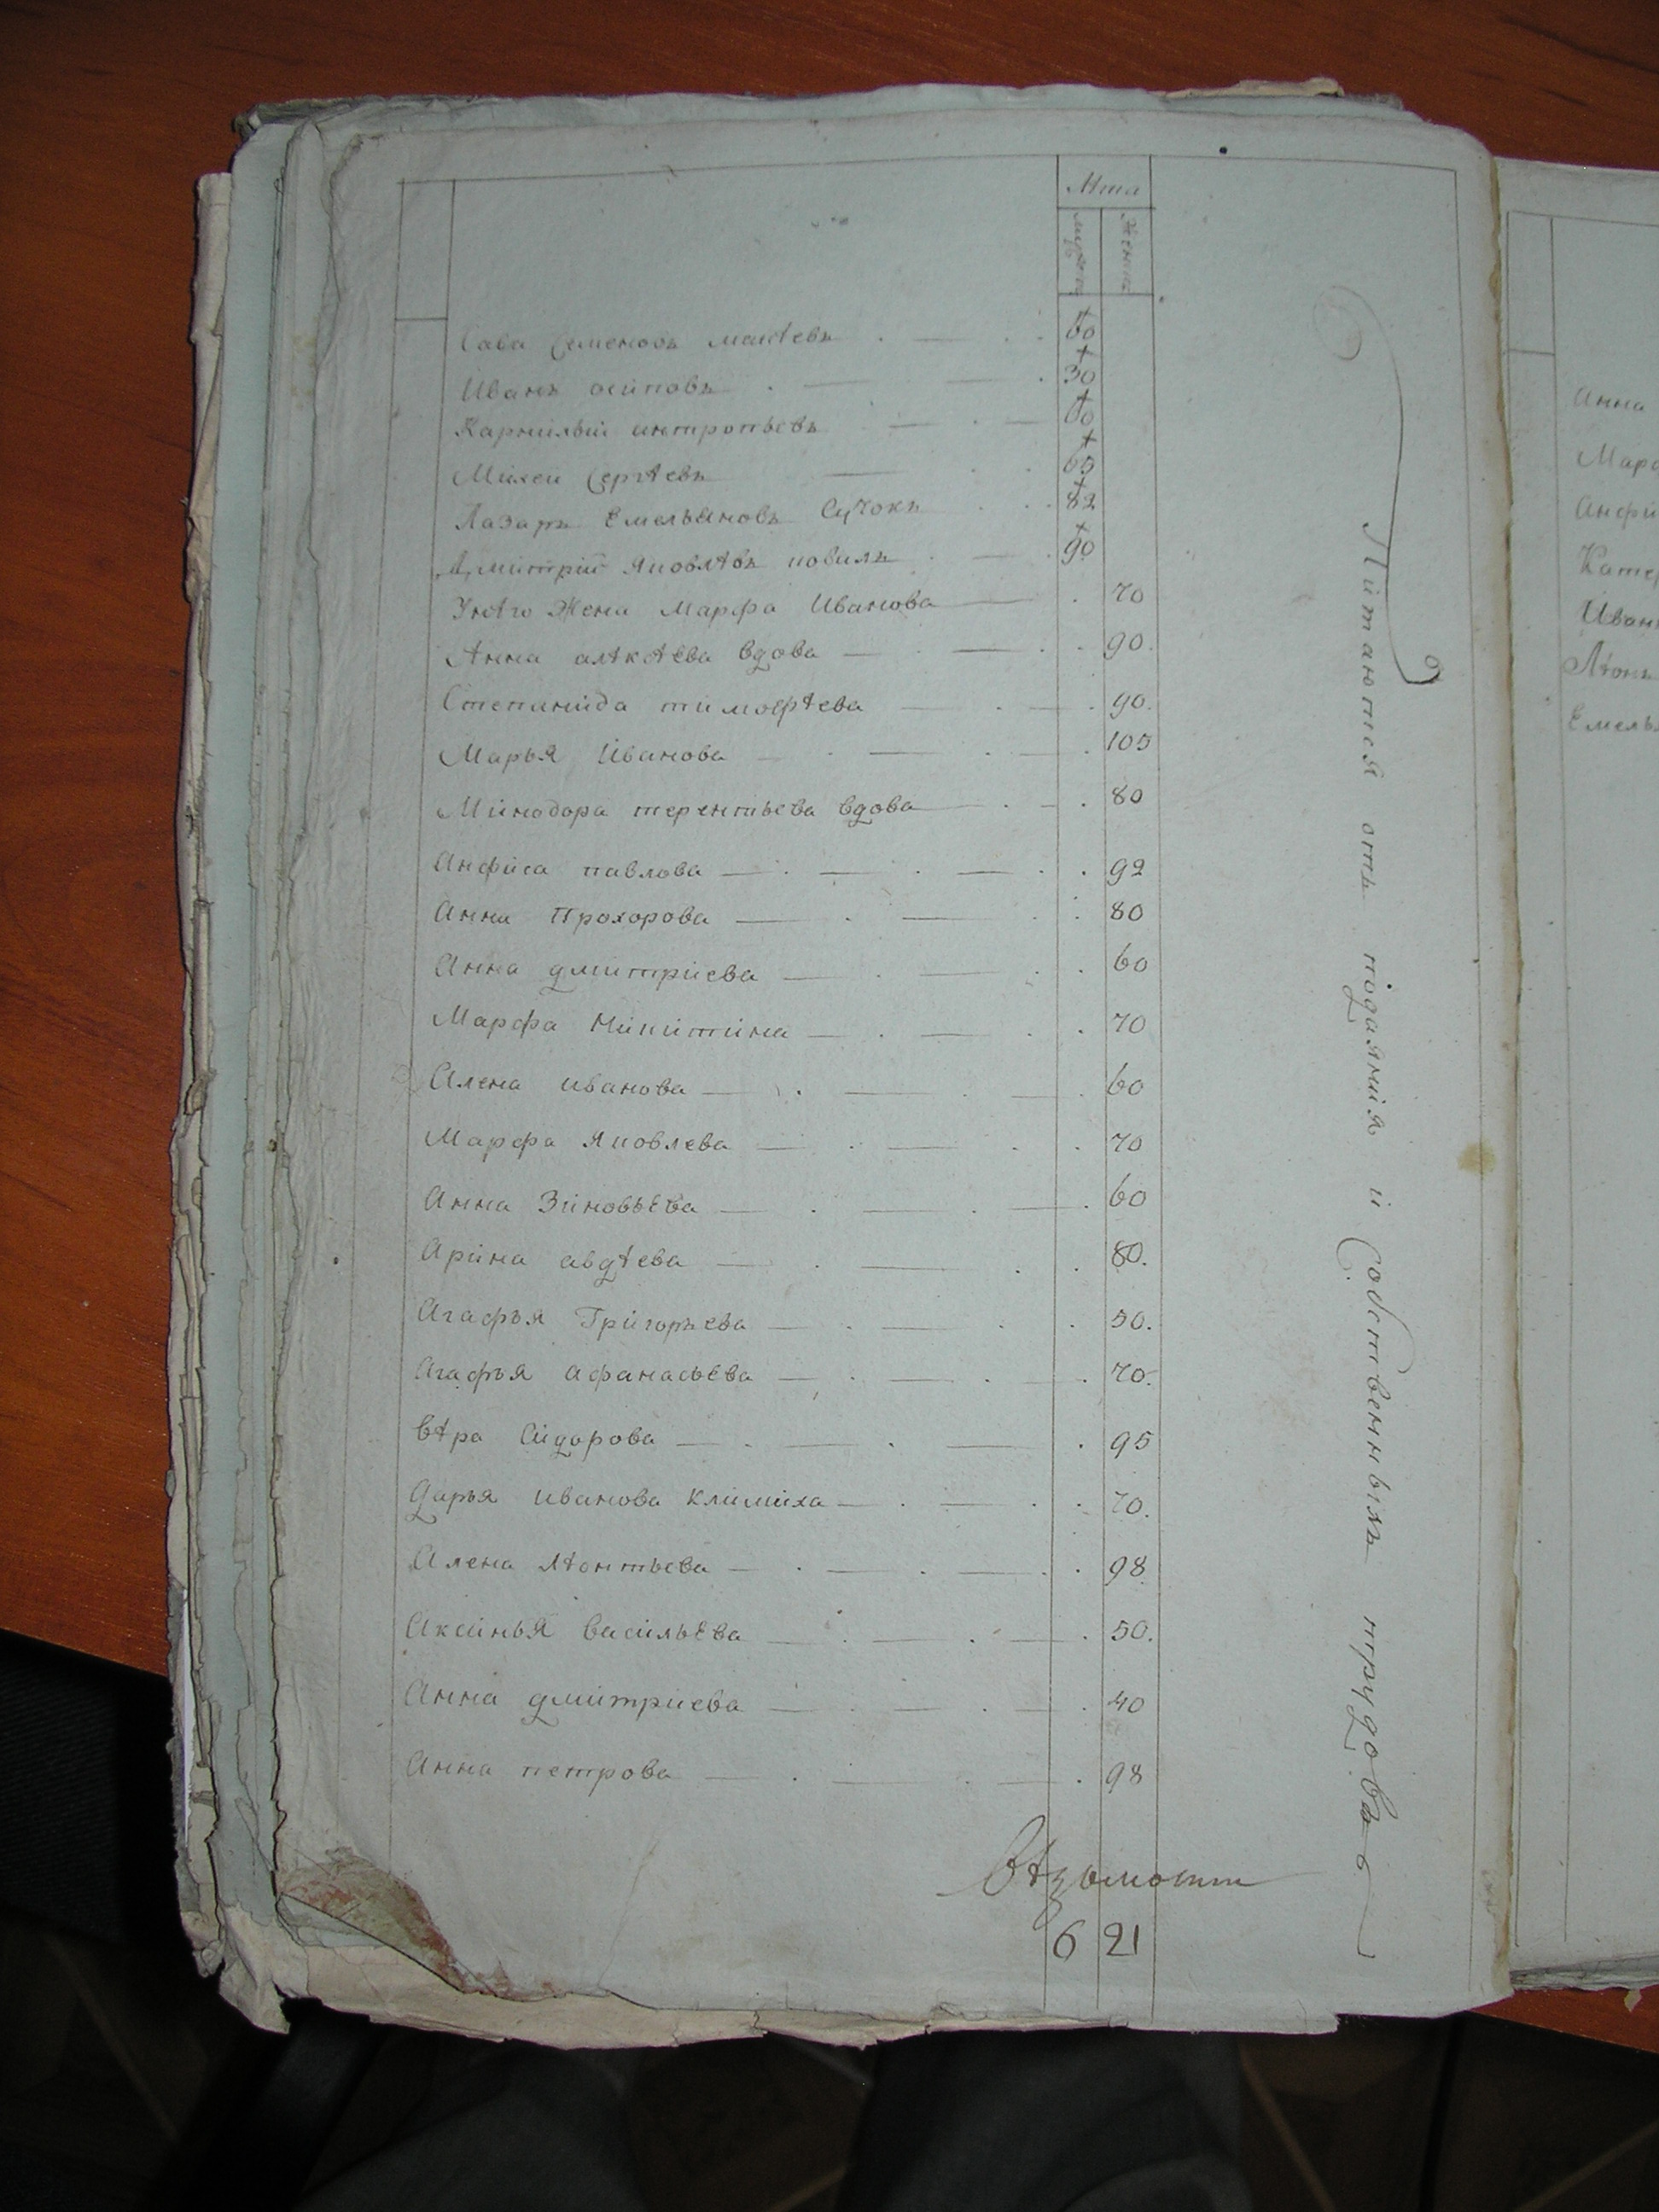 Лѣта
мужеск
женск
Сава Семеновъ 60
Иванъ осиповъ 30
Карнилий 60
Михеи Сергѣевъ 60
Лазарь Емельяновъ Сучокъ 82
Дмитрий Яковлѣвъ 90
Унѣго Жена Марфа Иванова 70
Анна алѣкѣева вдова 90.
Степанида тимофѣева 90.
Марья Иванова 105
Минодора терентьева вдова 80
Анфиса павлова 92
Анна Прохорова 80
Анна дмитриева 60
Марфа Никитина 70
Алена иванова 60
Марфа Яковлева 70
Анна Зиновьева 60
Арина авдѣева 80.
Агафья Григорьева 50.
Агафья Афанасьева 70.
вѣра Сидорова 95
Дарья иванова климиха 70.
Алена лѣонтьева 98
Аксинья васильева 50.
Анна дмитриева 40
Анна петрова 98
6 21
Питаются отъ подаяния и Собственныхъ трудовъ
Анна
Иван
Лѣонъ
Емель